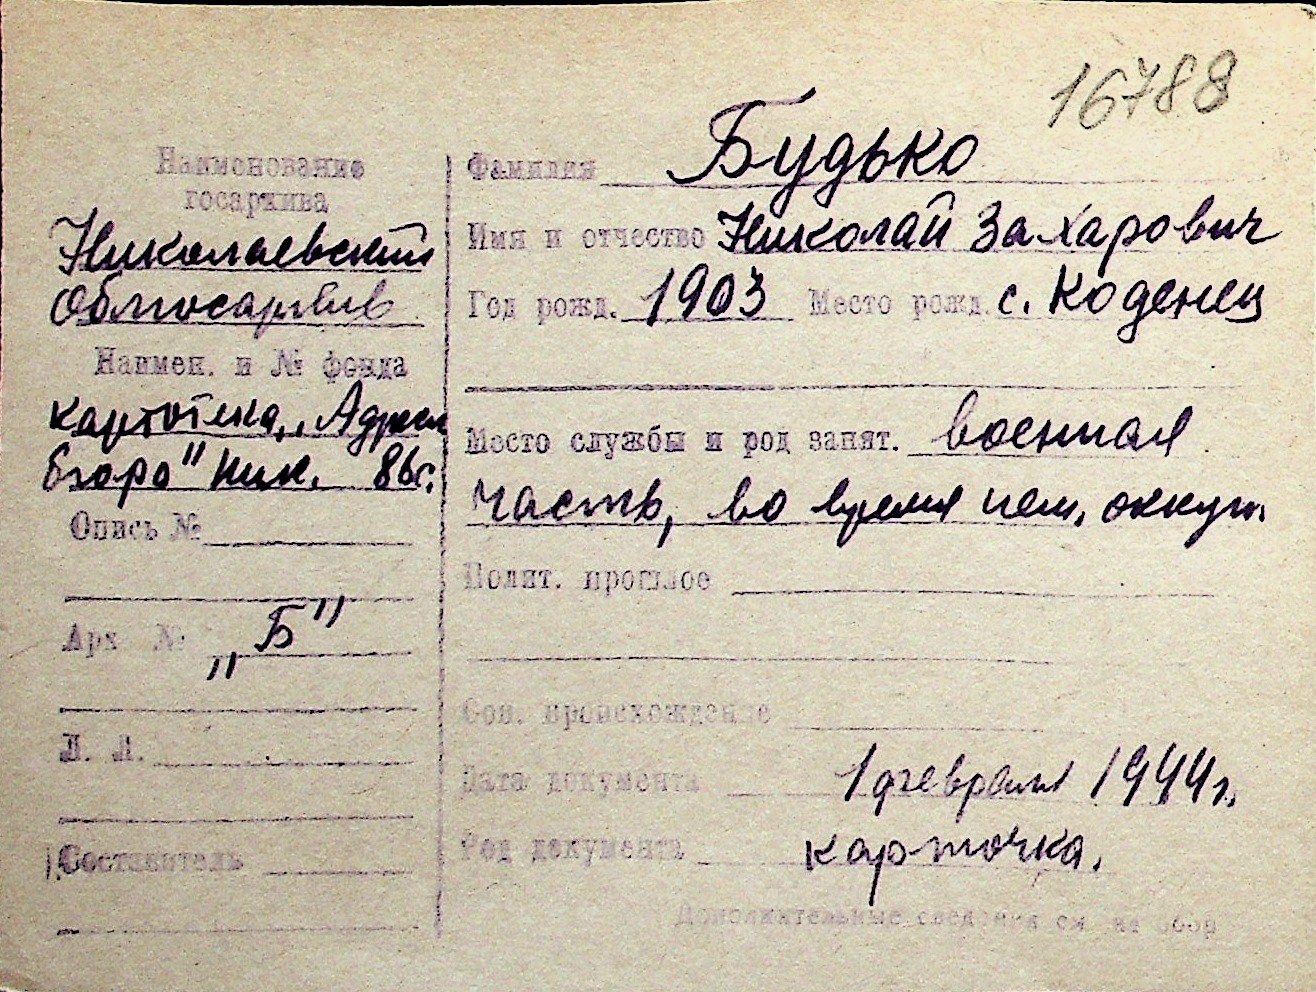 16788
Наименование
госархива
Николаевский
Облгосархив
Наимен. и № фонда
картотека „Адресн
бюро" Ник. 86г.
Опись №
Арх №
„Б"
Л. Л.
Составитель
Фамилия Будько
Имя и отчество Николай Захарович
Год рожд. 1903 Место рожд. с. Коденец
Место службы и род занят. военная
часть, во время нем. оккуп.
Полит. прошлое
Соц. происхождение
Дата документа 1 февраля 1944г.
Род документа карточка.
Дополнительные сведения см на обор